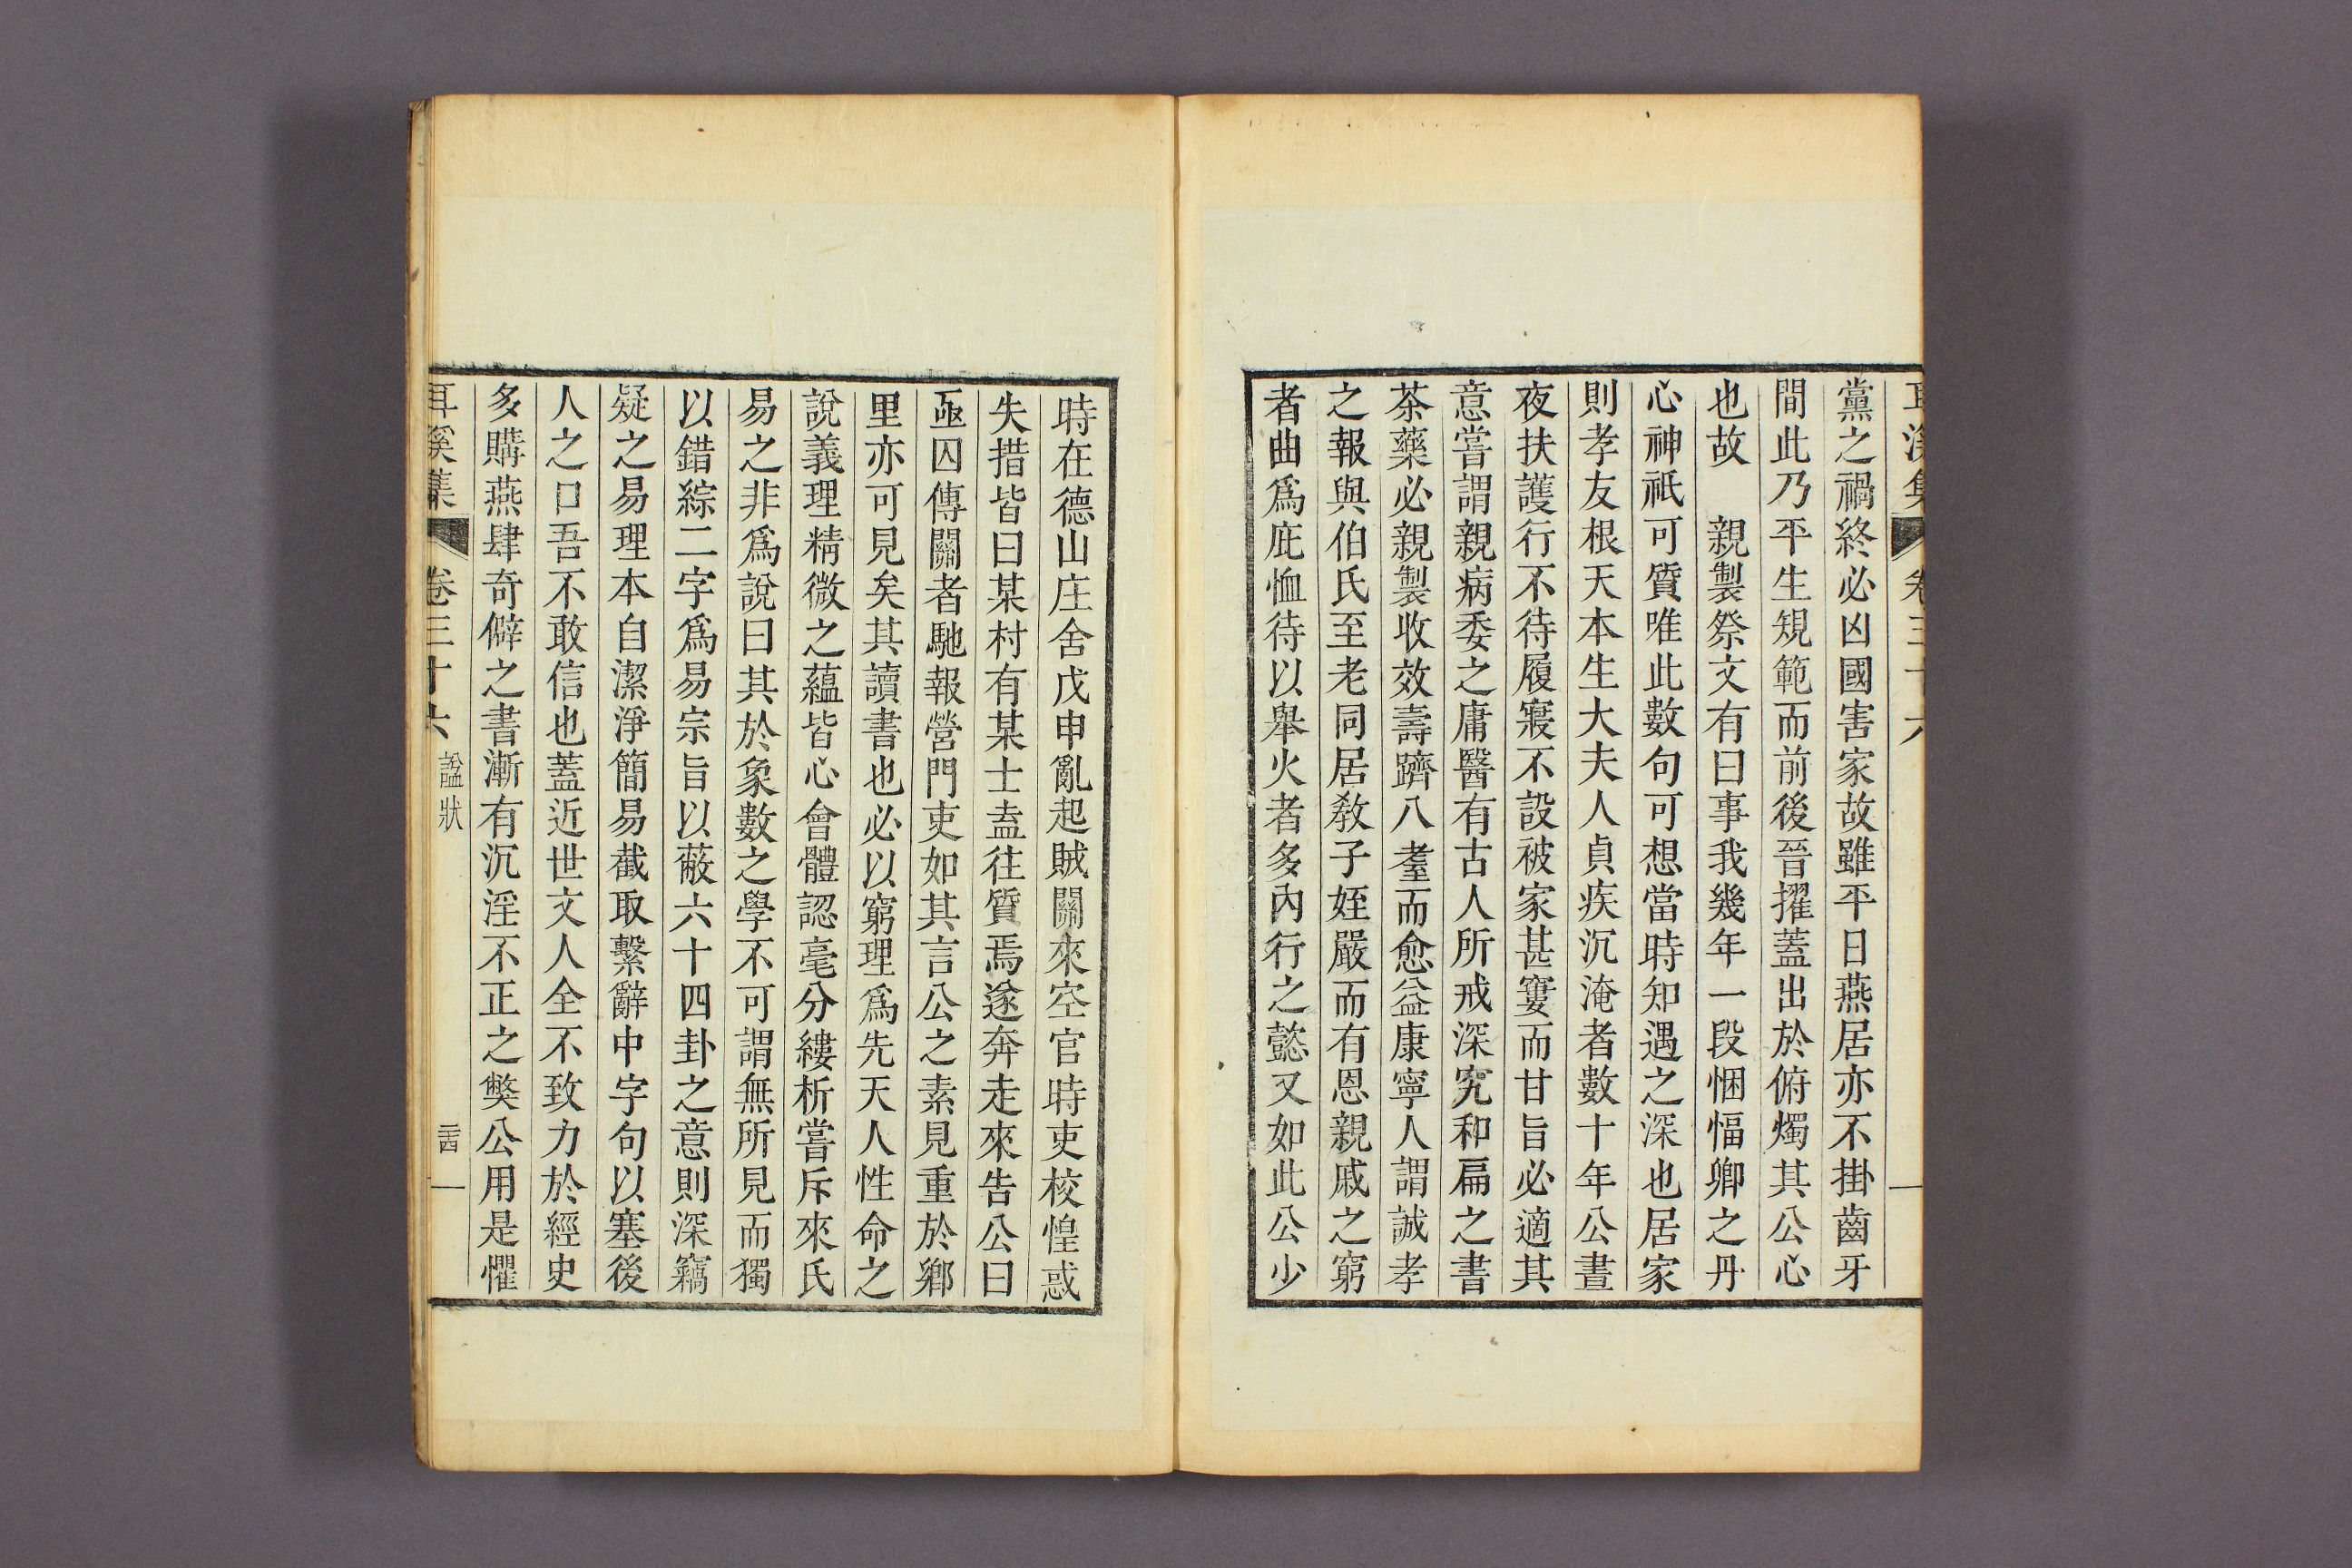 耳溪集 卷三十六
黨之禍終必凶國害家故雖平日燕居亦不掛齒牙
間此乃平生䂓範而前後晉擢蓋出於俯燭其公心
也故 親製祭文有曰事我幾年一段悃愊卿之丹
心神祇可質唯此數句可想當時知遇之深也居家
則孝友根天本生大夫人貞疾沉淹者數十年公晝
夜扶護行不待履寢不設被家甚窶而甘旨必適其
意嘗謂親病委之庸醫有古人所戒深究和扁之書
茶藥必親製收效壽躋八耋而愈益康寧人謂誠孝
之報與伯氏至老同居敎子姪嚴而有恩親戚之窮
者曲爲庇恤待以舉火者多內行之懿又如此公少
時在德山庄舍戊申亂起賊關來空官時吏校惶惑
失措皆曰某村有某士盍往質焉遂奔走來告公曰
亟囚傳關者馳報營門吏如其言公之素見重於鄉
里亦可見矣其讀書也必以窮理爲先天人性命之
說義理精微之蘊皆心會體認毫分縷析嘗斥來氏
易之非爲說曰其於象數之學不可謂無所見而獨
以錯綜二字爲易宗旨以蔽六十四卦之意則深竊
疑之易理本自潔淨簡易截取繫辭中字句以塞後
人之口吾不敢信也蓋近世文人全不致力於經史
多購燕肆奇僻之書漸有沉淫不正之獘公用是懼
耳溪集 卷三十六 諡狀 二十四